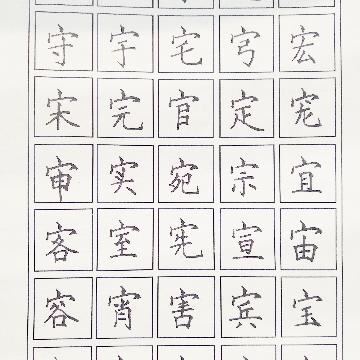 守 宇 宅 宏
宋 完 官 定 宠
审 实 宛 宗 宜
客 室 宪 宣 宙
容 宵 害 宾 宝